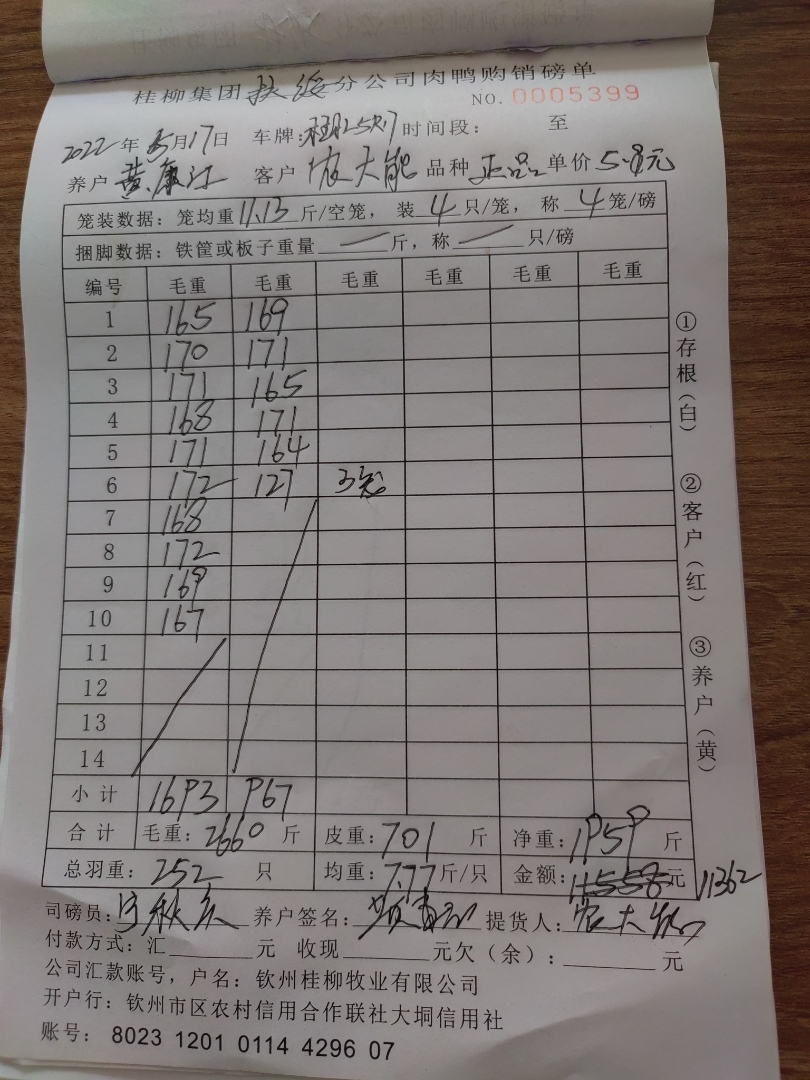 桂柳集团扶绥分公司肉鸭购销磅单
NO.0005399
2022年5月17日 车牌: 时间段: 至
养户 黄康江 客户 农大能 品种 正品 单价 5.8元
笼装数据:笼均重11.13斤/空笼,装4只/笼,称4笼/磅
捆脚数据:铁筐或板子重量 斤,称 只/磅
编号 毛重 毛重 毛重 毛重 毛重 毛重
1 165 169
2 170 171
3 171 165
4 168 171
5 171 164
6 172 127 3笼
7 168
8 172
9 169
10 167
11
12
13
14
小计 1693 967
合计 毛重:2660斤 皮重:701斤 净重:1959斤
总羽重:252只 均重:7.77斤/只 金额:11558元 11362
司磅员: 养户签名: 提货人:农大能
付款方式:汇 元 收现 元欠(余): 元
公司汇款账号,户名:钦州桂柳牧业有限公司
开户行:钦州市区农村信用合作联社大垌信用社
账号: 8023 1201 0114 4296 07
①存根(白)
②客户(红)
③养户(黄)